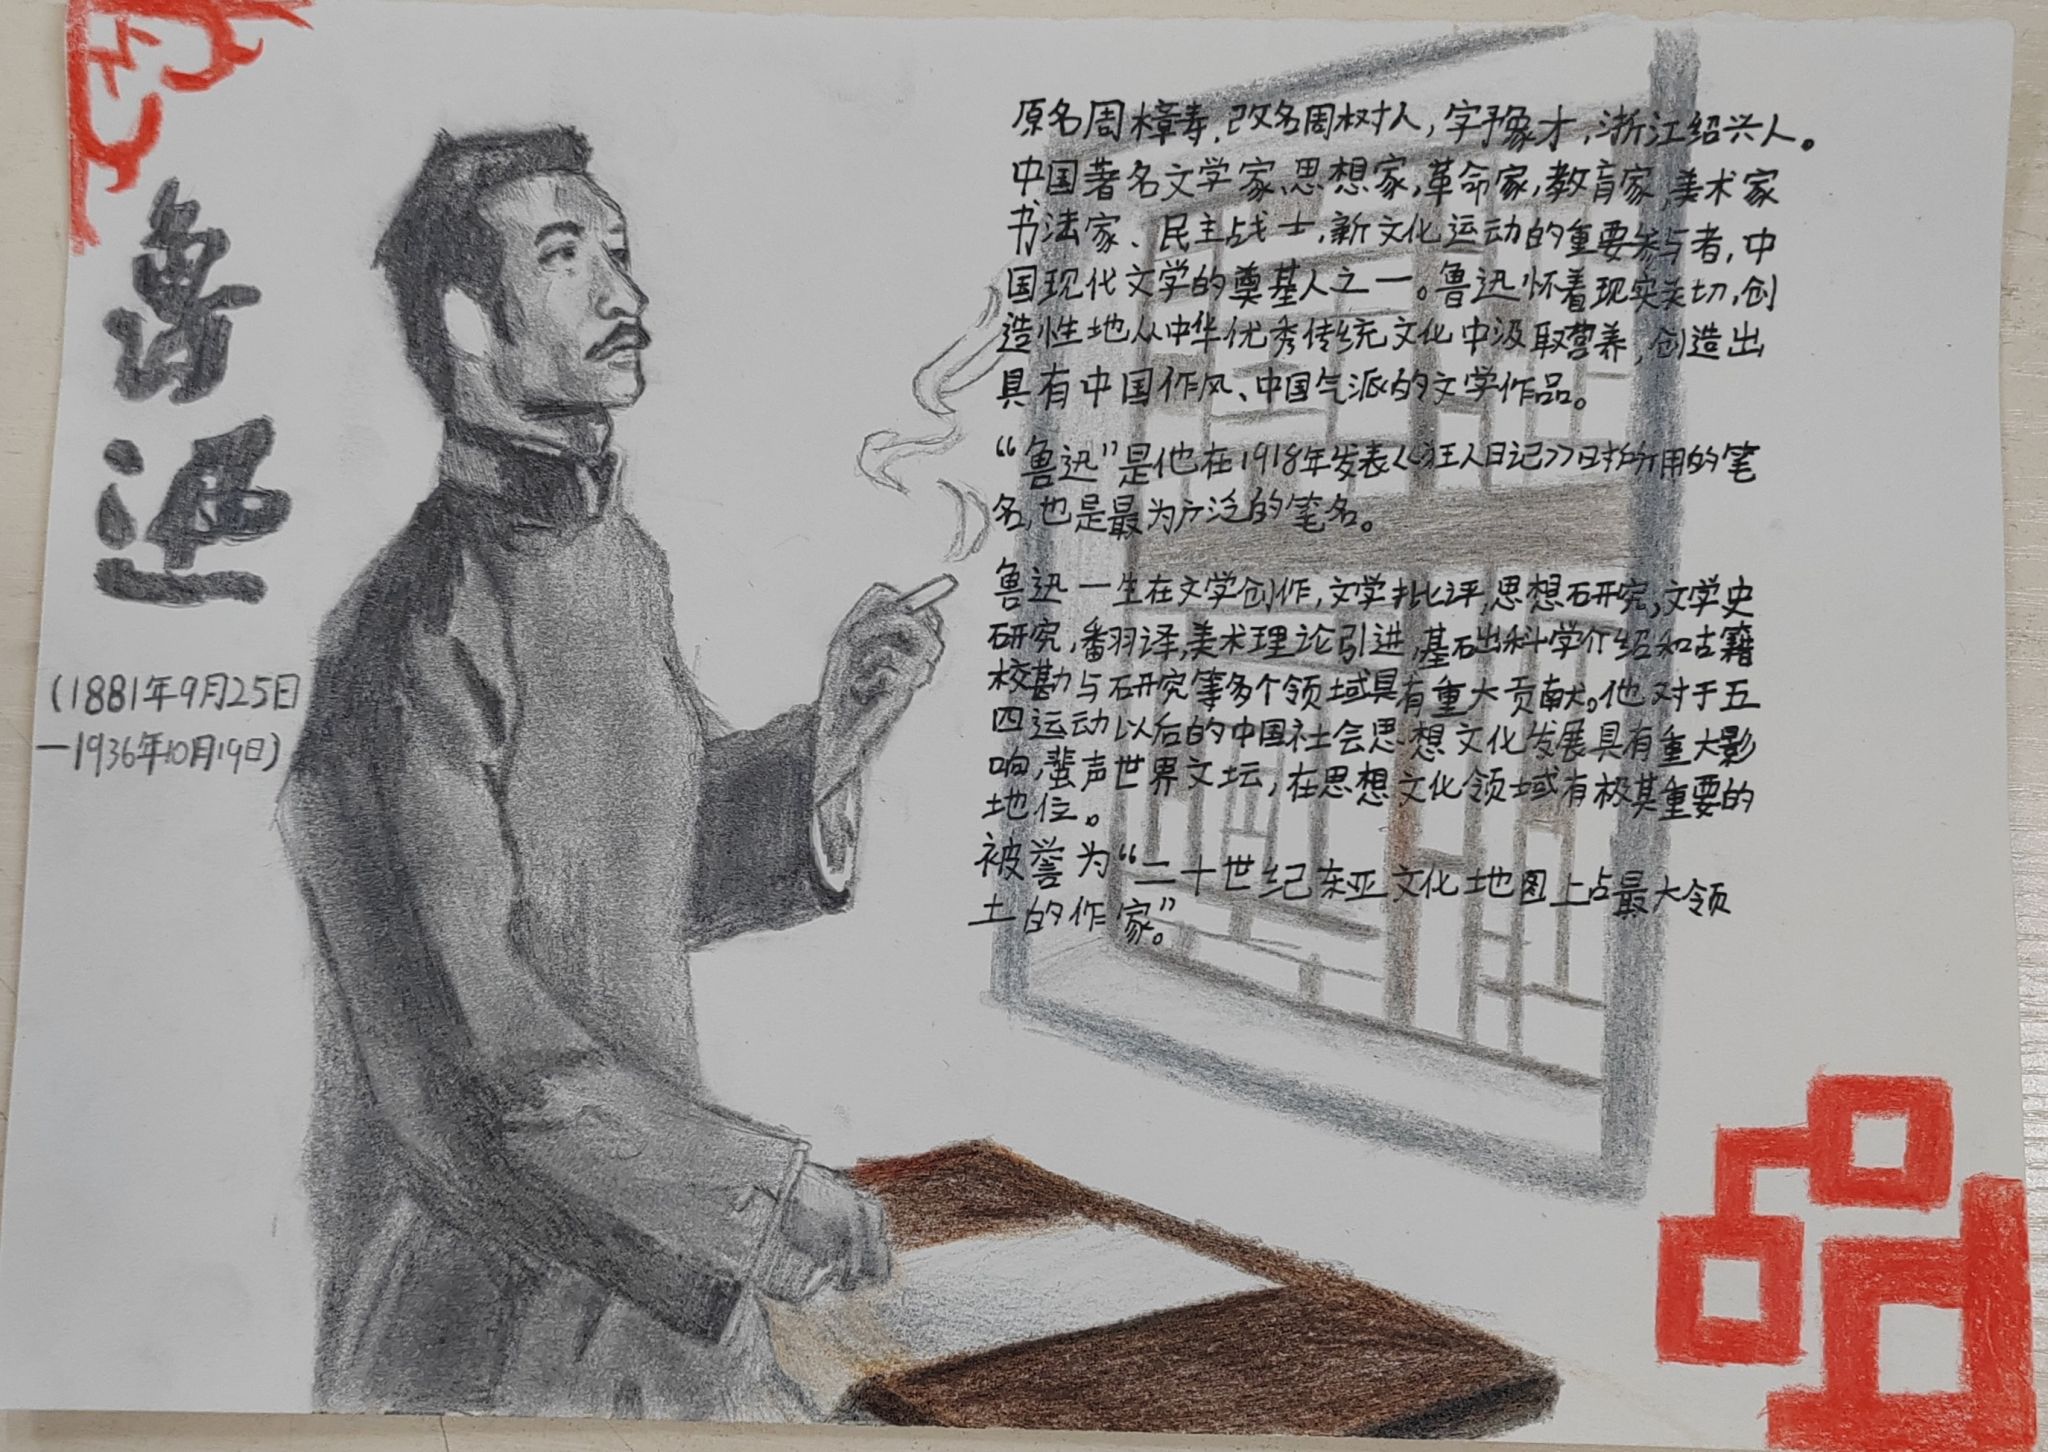 鲁
迅
(1881年9月25日
—1936年10月19日)
原名周樟寿,改名周树人,字豫才,浙江绍兴人。
中国著名文学家、思想家,革命家,教育家,美术家
书法家、民主战士,新文化运动的重要参与者,中
国现代文学的奠基人之一。鲁迅怀着现实关切,创
造性地从中华优秀传统文化中汲取营养,创造出
具有中国作风、中国气派的文学作品。
“鲁迅”是他在1918年发表《狂人日记》时所用的笔
名,也是最为广泛的笔名。
鲁迅一生在文学创作,文学批评,思想研究,文学史
研究,翻译,美术理论引进,基础科学介绍和古籍
校勘与研究等多个领域具有重大贡献。他对于五
四运动以后的中国社会思想文化发展具有重大影
响,蜚声世界文坛,在思想文化领域有极其重要的
地位。
被誉为“二十世纪东亚文化地图上占最大领
土的作家”。